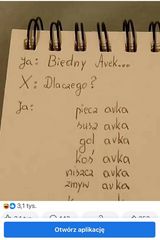 Ja: Biedny Avek...
X: Dlaczego?
Ja:
piecz avka
susz avka
gol avka
koś avka
niszcz avka
zmyw avka
3,1 tys.
Otwórz aplikację